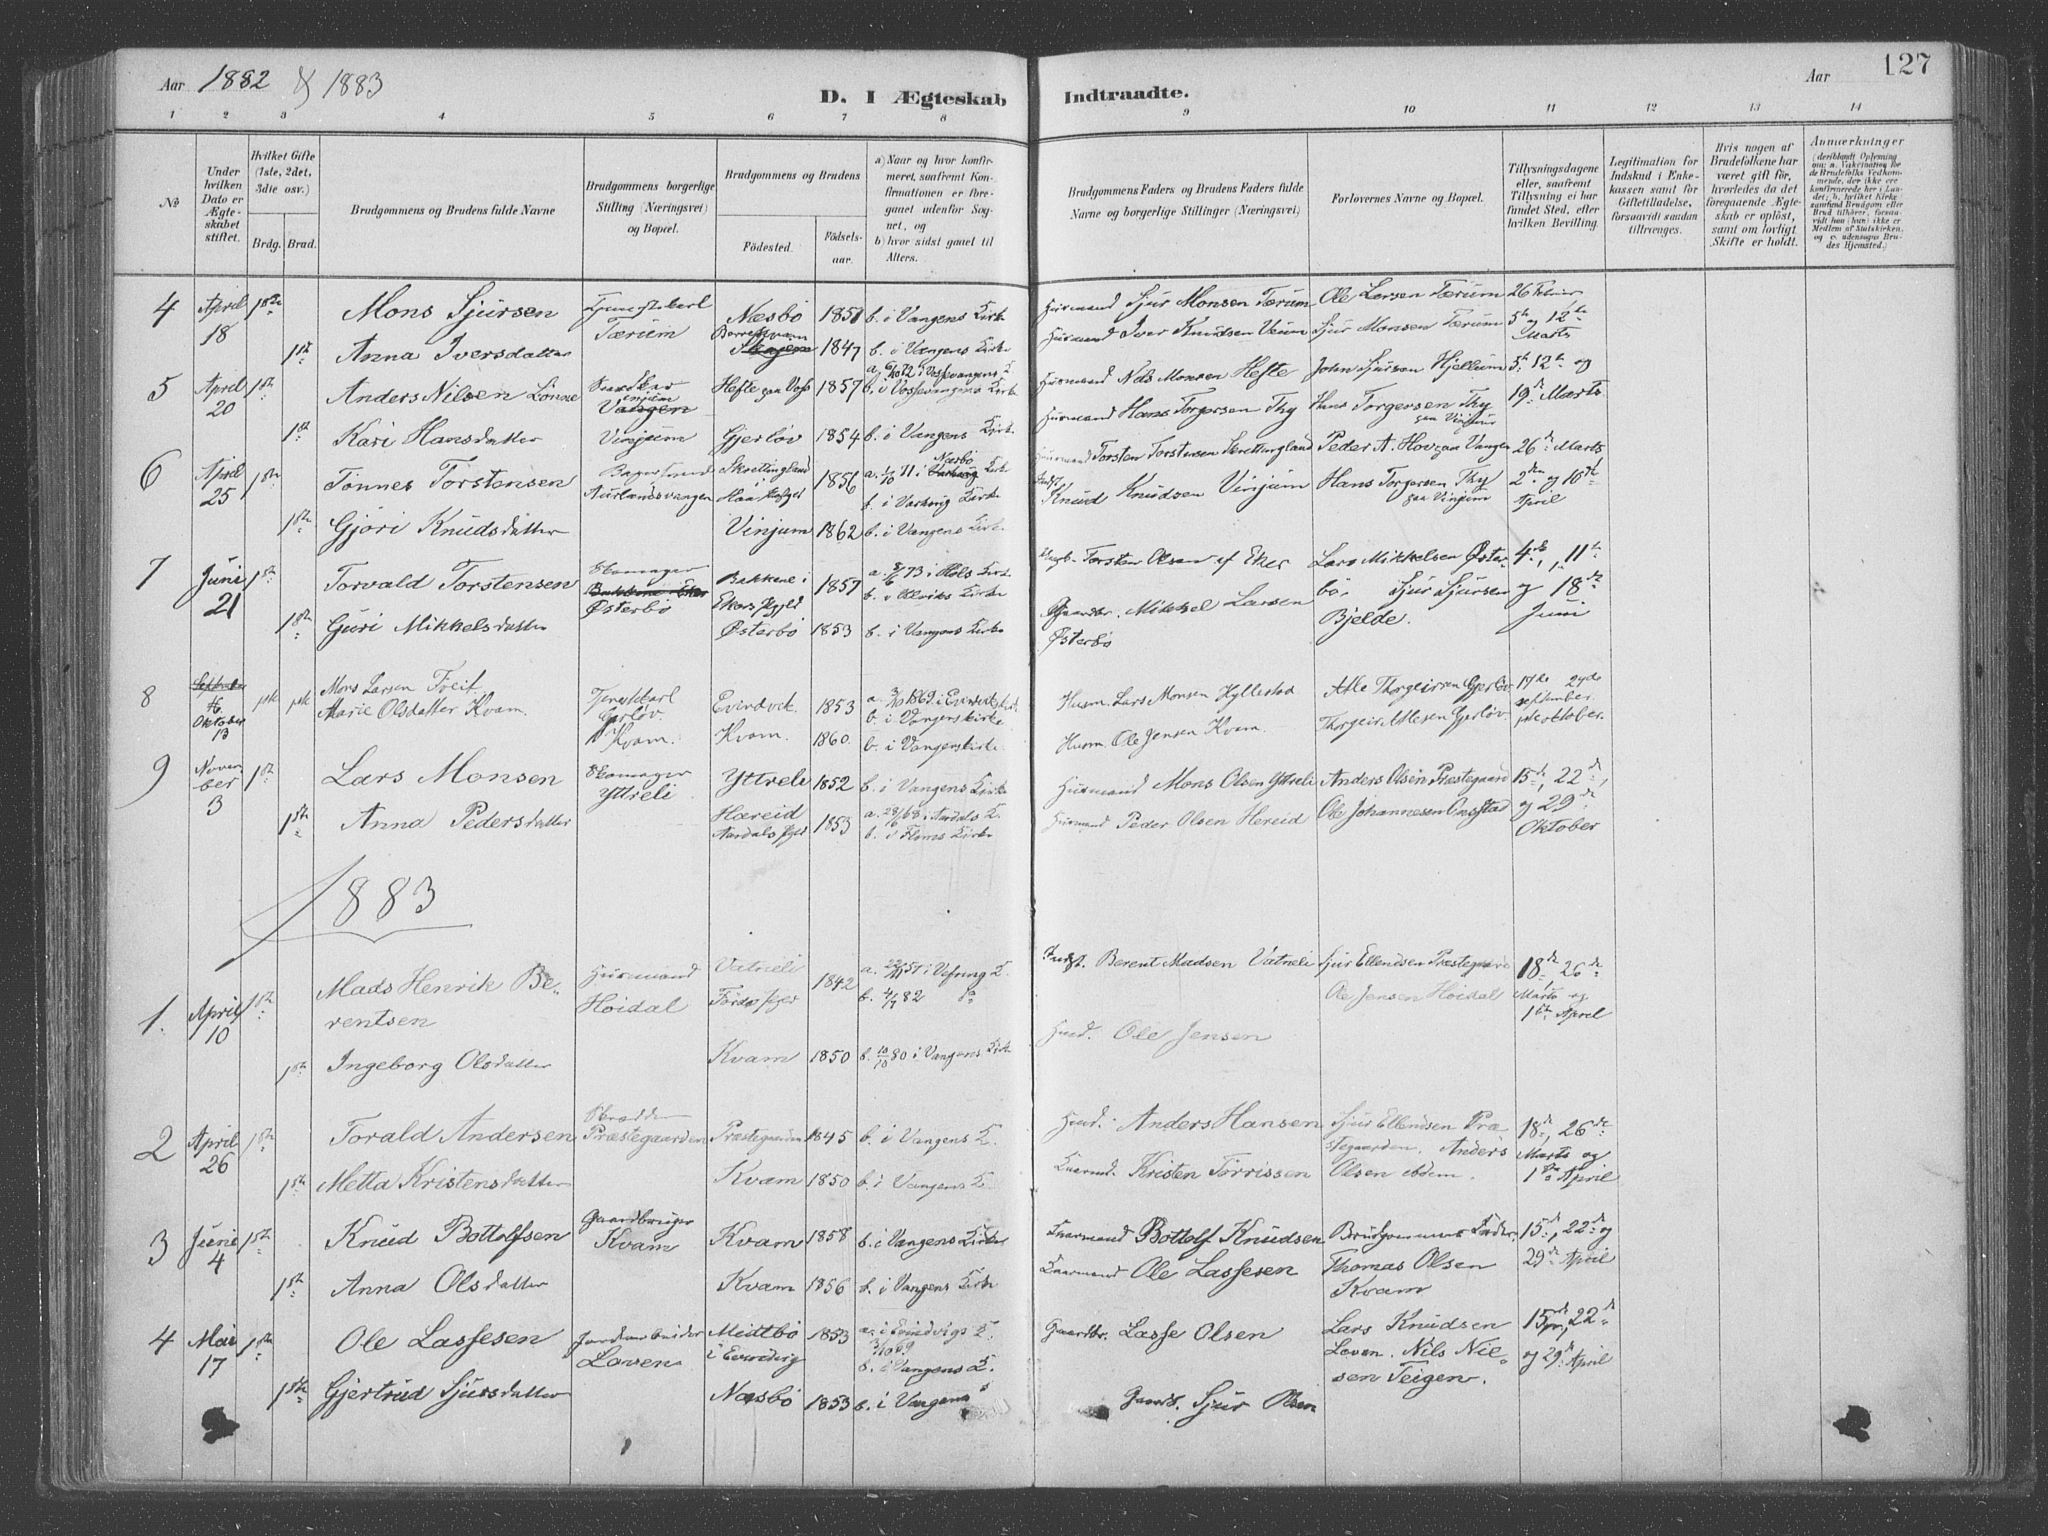 Aar 1882 & 1883
D. I Ægteskab Indtraadte.
Aar 127
1 2 3 4 5 6 7 8 9 10 11 12 13 14
No
Under hvilken Dato er Ægteskabet stiftet.
Hvilket Gifte (1ste, 2det, 3die osv.)
Brdg. Brud.
Brudgommens og Brudens fulde Navne
Brudgommens borgerlige Stilling (Næringsvei) og Bopæl.
Brudgommens og Brudens
Fødested. Fødselsaar.
a) Naar og hvor konfirmeret, saafremt Konfirmationen er foregaaet udenfor Sognet, og
b) hvor sidst gaaet til Alters.
Brudgommens Faders og Brudens Faders fulde Navne og borgerlige Stillinger (Næringsvei)
Forlovernes Navne og Bopæl.
Tillysningsdagene eller, saafremt Tillysning ei har fundet Sted, efter hvilken Bevilling.
Legitimation for Indskud i Enkekassen samt for Giftetilladelse, forsaavidt saadan tiltrænges.
Hvis nogen af Brudefolkene har været gift før, hvorledes da det foregaaende Ægteskab er opløst, samt om lovligt Skifte er holdt.
Anmærkninger
4 April 18 1ste Mons Sjursen Tjenestekarl Tærum Næsbö 1851 b. i Vangens Kirke Husmand Sjur Monsen Tærum Ole Larsen Tærum 26 Februar
1ste Anna Iversdatter 1847 b. i Vangens Kirke Husmand Iver Knudsen Veum Sjur Monsen Tærum 5te og 12te Marts
5 April 20 1ste Anders Nilsen Lönne Snedker Vinjum Hefte paa Voss 1857 b. i Vossevangens Kirke Husmand Nels Monsen Hefte John Sjursen Hjellum 5te 12te og
1ste Kari Hansdatter Vinjum Gjerløv 1854 b. i Vangens Kirke Husmand Hans Torgersen Thy Hans Torgersen Thy paa Vinjum 19de Marts
6 April 25 1ste Tönnes Torstensen Aurlandsvangen Skrettingland i Haa 1856 a. 1/10 71 i Næsbö Kirke Husmand Torsten Torstensen Skrettingland Peder A. Hov paa Vangen 26de Marts
b. i Varhoug Kirke Knud Knudsen Vinjum Hans Torgersen Thy paa Vinjum 2den og 10de April
1ste Gjöri Knudsdatter Vinjum 1862 b. i Vangens Kirke
7 Juni 21 1ste Torvald Torstensen Skomager Österbö Bakkene i Ekers Pgjeld 1857 a. 73 i Hols Kirke Torsten Olsen af Eker Lars Mikkelsen Österbö. Sjur Sjursen Bjelde. 4de, 11te og 18de Juni
1ste Guri Mikkelsdatter Österbö 1853 b. i Vangens Kirke Gaardbr. Mikkel Larsen Österbö
8 September Oktober 13 Mons Larsen Tjenestkarl Gerløv Evindvik. 1853 a. 1869 i Evindviks Kirke b. i Vangenskirke Husm. Lars Monsen Hyllestad Atle Thorgeirsen Gjerløv 17de 24de September.
Marie Olsdatter Kvam. Kvam. Kvam. 1860. b. i Vangenskirke Husm. Ole Jensen Kvam. Thorgeir Atlesen Gjerløv. 1ste Oktober.
9 November 3 1ste Lars Monsen Skomager Yttreli Yttreli 1852 b. i Vangens Kirke Husmand Mons Olsen Yttreli Anders Olsen Præstegaard 15de, 22de,
1ste Anna Pedersdatter Hæreid Aardals Pgjd 1853 a. 28/6 68 i Aardals K. b. i Flams Kirke Husmand Peder Olsen Hereid Ole Johannesen Onstad og 29de Oktober
1883
1. April 10 1ste Mads Henrik Berentsen Husmand Höidal Vatneli Förde Pgjd 1842 a. 57 i Vefring K. b. 4/7 82 Do Indst. Berent Madsen Vatneli Sjur Ellendsen Præstegaard 18de, 26de Marts og 1ste April
Ole Jensen Höidal
1ste Ingeborg Olsdatter Kvam 1850 b. 10/10 80 i Vangens Kirke Husd. Ole Jensen
2 April 26 1ste Torald Andersen Skrædder Præstegaarden Præstegaarden 1845 b. i Vangens K. Husd. Anders Hansen Sjur Ellendsen Præstegaarden. Anders Olsen ibdem. 18de, 26de Marts og 1ste April
1ste Metta Kristensdatter Kvam 1850 b. i Vangens K. Kaarmd. Kristen Torrissen
3 Juni 4 1ste Knud Bottolfsen Gaardbruger Kvam Kvam 1858 b. i Vangens Kirke Kaarmand Bottolf Knudsen Brudgommens Fader. 15de, 22de og
1ste Anna Olsdatter Kvam 1856 b. i Vangens Kirke Kaarmand Ole Lassesen Thomas Olsen Kvam 29de April
4 Mai 17 1ste Ole Lassesen Jordarbeider Loven Midtbö i Evindvig 1853 a. i Evindvigs K. b. i Vangens K. Gaardbr. Lasse Olsen Lars Knudsen Loven. Nils Nielsen Teigen. 15de, 22de og 29de April
1ste Gjertrud Sjursdatter Næsbö 1853 b. i Vangens Gaardb. Sjur Olsen